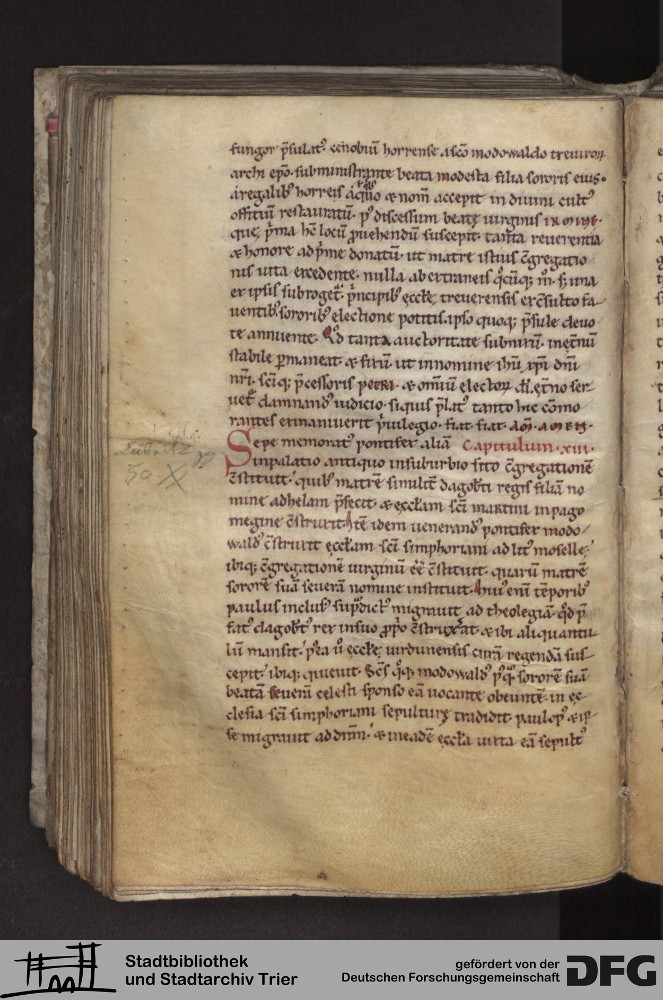 fungor p̄sulatꝰ. cenobiū horrense a sc̄o modowaldo treuiroꝝ
archi ep̄o. subministrante beata modesta filia sororis eius.
a regalibꝰ horreis a quo & nom̄ accepit in diuini cultꝰ
offitiū restauratū. pꝰ discessum beatę uirginis
que, p̄ma hc̄ locū puehendū suscepit. tanta reuerentia
& honore ad p̄me donatū. ut matre istius c̄gregatio
nis uita excedente. nulla ab extraneis q̄cūq; m̄. s; una
ex ipsis subroget᷑. p̄ncipibꝰ ęccłę treuerensis ex c̄sulto fa
uentibꝰ. sororibꝰ electione potitis. ipso quoq; p̄sule deuo
te annuente. Qd̄ tanta auctoritate subnixū. in et̄nū
stabile p̄maneat. & firmū ut in nomine ih̄u xp̄i dn̄i
nr̄i. sc̄iq; p̄cessoris petri. & om̄iū electoꝝ dī. et̄no ser
uet᷑ damnand iudicio. siquis p̄latꝰ tanto hic c̄mo
rantes exinaniuerit p̄iuilegio. fiat fiat. am̄. amen.
Sepe memoratꝰ pontifex aliā Capitulum. xiii.
in palatio antiquo in suburbio sito c̄gregationē
c̄stituit. quibꝰ matrē similit᷑ dagobti regis filiā no
mine adhelam p̄fecit. & ęccłam sc̄i martini in pago
megine c̄struxit. Itē idem uenerandꝰ pontifex modo
waldꝰ c̄struxit ęccłam sc̄i simphoriani ad litꝰ moselle.
ibiq; c̄gregationē uirginū eē c̄stituit. quarū matrē
sororē suā seuerā nomine instituit. Huiꝰ enī tēporibꝰ
paulus inclusꝰ supdictꝰ migrauit ad theolegiā. qd̄ p̄
fatꝰ dagobtꝰ rex in suo pprio c̄struxerat. & ibi aliquantu
lū mansit. p̄ea ū ęccłę uirdunensis curā regendā sus
cepit. ibiq; quieuit. Sc̄s q̄q; modowaldꝰ pꝰq̄ sororē suā
beatā seuerā celesti sponso eā uocante obeuntē in ęc
clesia sc̄i simphoriani sepulturę tradidit paulopꝰ & ip
se migrauit ad dn̄m. & in eadē ęccła iuxta eā sepultꝰ
50 X
Stadtbibliothek
und Stadtarchiv Trier
gefördert von der
Deutschen Forschungsgemeinschaft
DFG